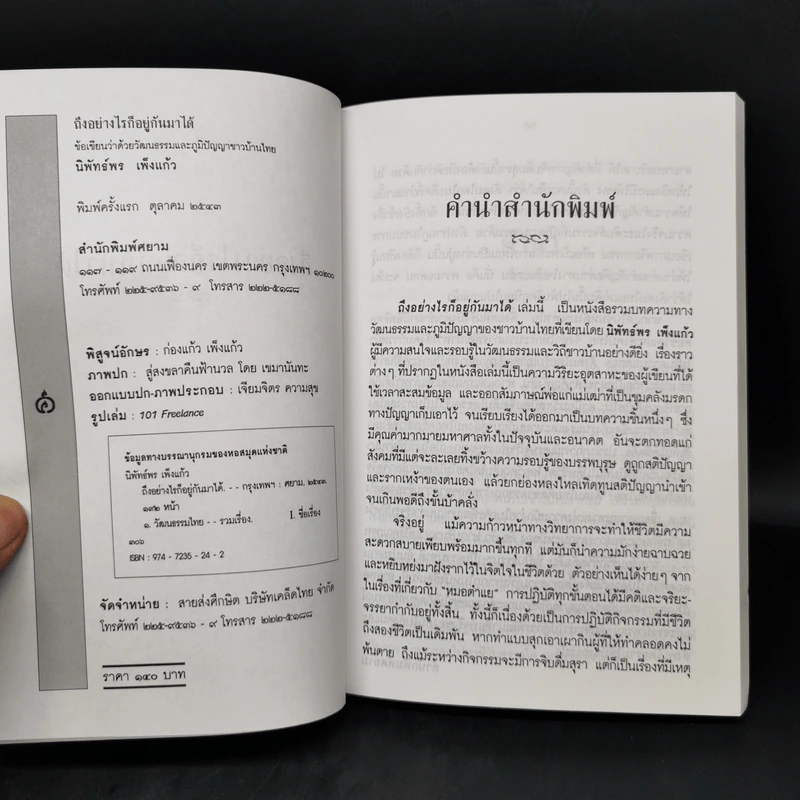 ถึงอย่างไรก็อยู่กันมาได้
ข้อเขียนว่าด้วยวัฒนธรรมและภูมิปัญญาชาวบ้านไทย
นิพัทธ์พร เพ็งแก้ว
พิมพ์ครั้งแรก ตุลาคม ๒๕๔๓
สำนักพิมพ์ศยาม
๑๑๗ - ๑๑๙ ถนนเฟื่องนคร เขตพระนคร กรุงเทพฯ ๑๐๒๐๐
โทรศัพท์ ๒๒๕-๙๕๓๖ - ๙ โทรสาร ๒๒๒-๕๑๘๘
พิสูจน์อักษร : ก่องแก้ว เพ็งแก้ว
ภาพปก : สู่สงขลาคืนฟ้านวล โดย เขมานันทะ
ออกแบบปก-ภาพประกอบ : เจียมจิตร ความสุข
รูปเล่ม : 101 Freelance
ข้อมูลทางบรรณานุกรมของหอสมุดแห่งชาติ
นิพัทธ์พร เพ็งแก้ว
ถึงอย่างไรก็อยู่กันมาได้. - - กรุงเทพฯ : ศยาม. ๒๕๔๓
๑๙๒ หน้า
๑. วัฒนธรรมไทย - - รวมเรื่อง. I. ชื่อเรื่อง
๓๐๖
ISBN : 974 - 7235 - 24 - 2
จัดจำหน่าย : สายส่งศึกษิต บริษัทเคล็ดไทย จำกัด
โทรศัพท์ ๒๒๕-๙๕๓๖ - ๙ โทรสาร ๒๒๒-๕๑๘๘
ราคา ๑๔๐ บาท
คำนำสำนักพิมพ์
ถึงอย่างไรก็อยู่กันมาได้ เล่มนี้ เป็นหนังสือรวมบทความทาง
วัฒนธรรมและภูมิปัญญาของชาวบ้านไทยที่เขียนโดย นิพัทธ์พร เพ็งแก้ว
ผู้มีความสนใจและรอบรู้ในวัฒนธรรมและวิถีชาวบ้านอย่างดียิ่ง เรื่องราว
ต่างๆ ที่ปรากฏในหนังสือเล่มนี้เป็นความวิริยะอุตสาหะของผู้เขียนที่ได้
ใช้เวลาสะสมข้อมูล และออกสัมภาษณ์พ่อแก่แม่เฒ่าที่เป็นขุมคลังมรดก
ทางปัญญาเก็บเอาไว้ จนเรียบเรียงได้ออกมาเป็นบทความชิ้นหนึ่งๆ ซึ่ง
มีคุณค่ามากมายมหาศาลทั้งในปัจจุบันและอนาคต อันจะตกทอดแก่
สังคมที่มีแต่จะละเลยทิ้งขว้างความรอบรู้ของบรรพบุรุษ ดูถูกสติปัญญา
และรากเหง้าของตนเอง แล้วยกย่องหลงใหลเทิดทูนสติปัญญานำเข้า
จนเกินพอดีถึงขั้นบ้าคลั่ง
จริงอยู่ แม้ความก้าวหน้าทางวิทยาการจะทำให้ชีวิตมีความ
สะดวกสบายเพียบพร้อมมากขึ้นทุกที แต่มันก็นำความมักง่ายฉาบฉวย
และหยิบหย่งมาฝังรากไว้ในจิตใจในชีวิตด้วย ตัวอย่างเห็นได้ง่ายๆ จาก
ในเรื่องที่เกี่ยวกับ "หมอตำแย" การปฏิบัติทุกขั้นตอนได้มีคติและจริยะ-
จรรยากำกับอยู่ทั้งสิ้น ทั้งนี้ก็เนื่องด้วยเป็นการปฏิบัติกิจกรรมที่มีชีวิต
ถึงสองชีวิตเป็นเดิมพัน หากทำแบบสุกเอาเผากินผู้ที่ให้ทำคลอดคงไม่
พ้นตาย ถึงแม้ระหว่างกิจกรรมจะมีการจิบดื่มสุรา แต่ก็เป็นเรื่องที่มีเหตุ